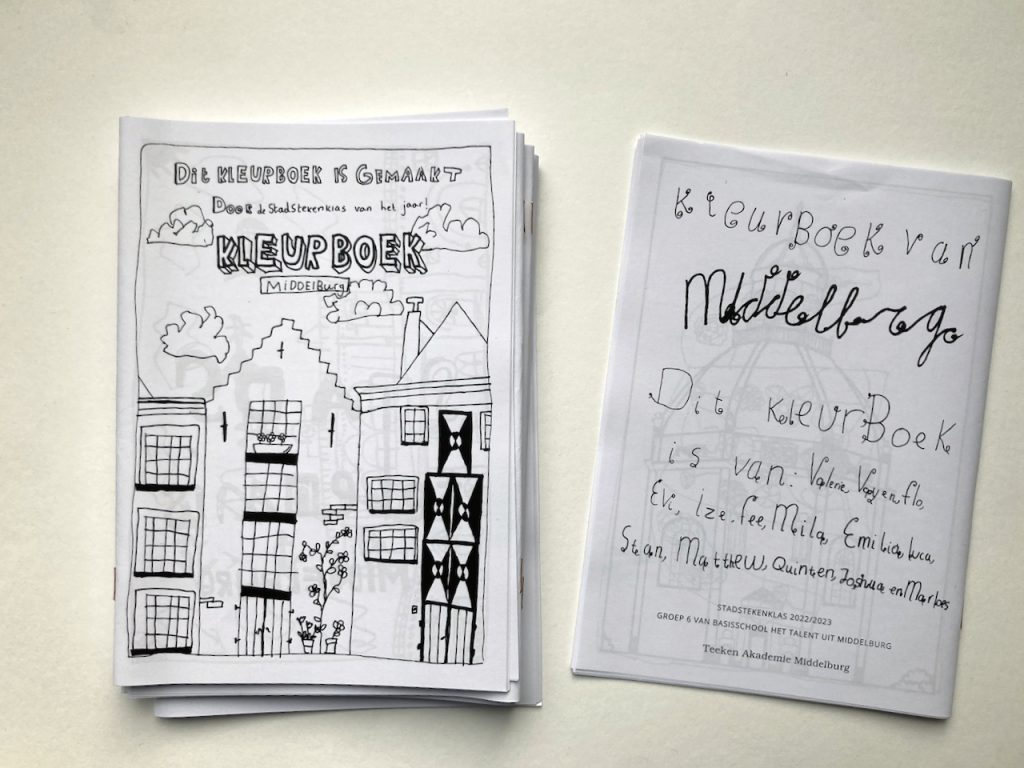 Dit KLEURBOEK IS GEMAAKT
Door de StadStekenklas van het jaar!
KLEURBOEK
MiDDElBurg
kleurBoek van
Middelburg
Dit kleurBoek
is van: Valerie,
Evi, Ize-fee, Mila, Emilia, Luca,
Stan, Matthew, Quinten, Joshua en Marloes
STADSTEKENKLAS 2022/2023
GROEP 6 VAN BASISSCHOOL HET TALENT UIT MIDDELBURG
Teeken Akademie Middelburg